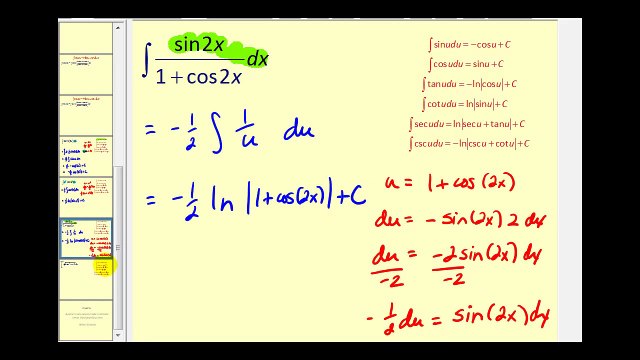 ∫ sin2x / (1 + cos2x) dx
= -1/2 ∫ 1/u du
= -1/2 ln |1+cos(2x)| + C
∫ sin u du = −cos u + C
∫ cos u du = sin u + C
∫ tan u du = −ln|cos u| + C
∫ cot u du = ln|sin u| + C
∫ sec u du = ln|sec u + tan u| + C
∫ csc u du = −ln|csc u + cot u| + C
u = 1 + cos(2x)
du = - sin(2x) 2 dx
du/-2 = -2 sin(2x) dx/-2
-1/2 du = sin(2x) dx